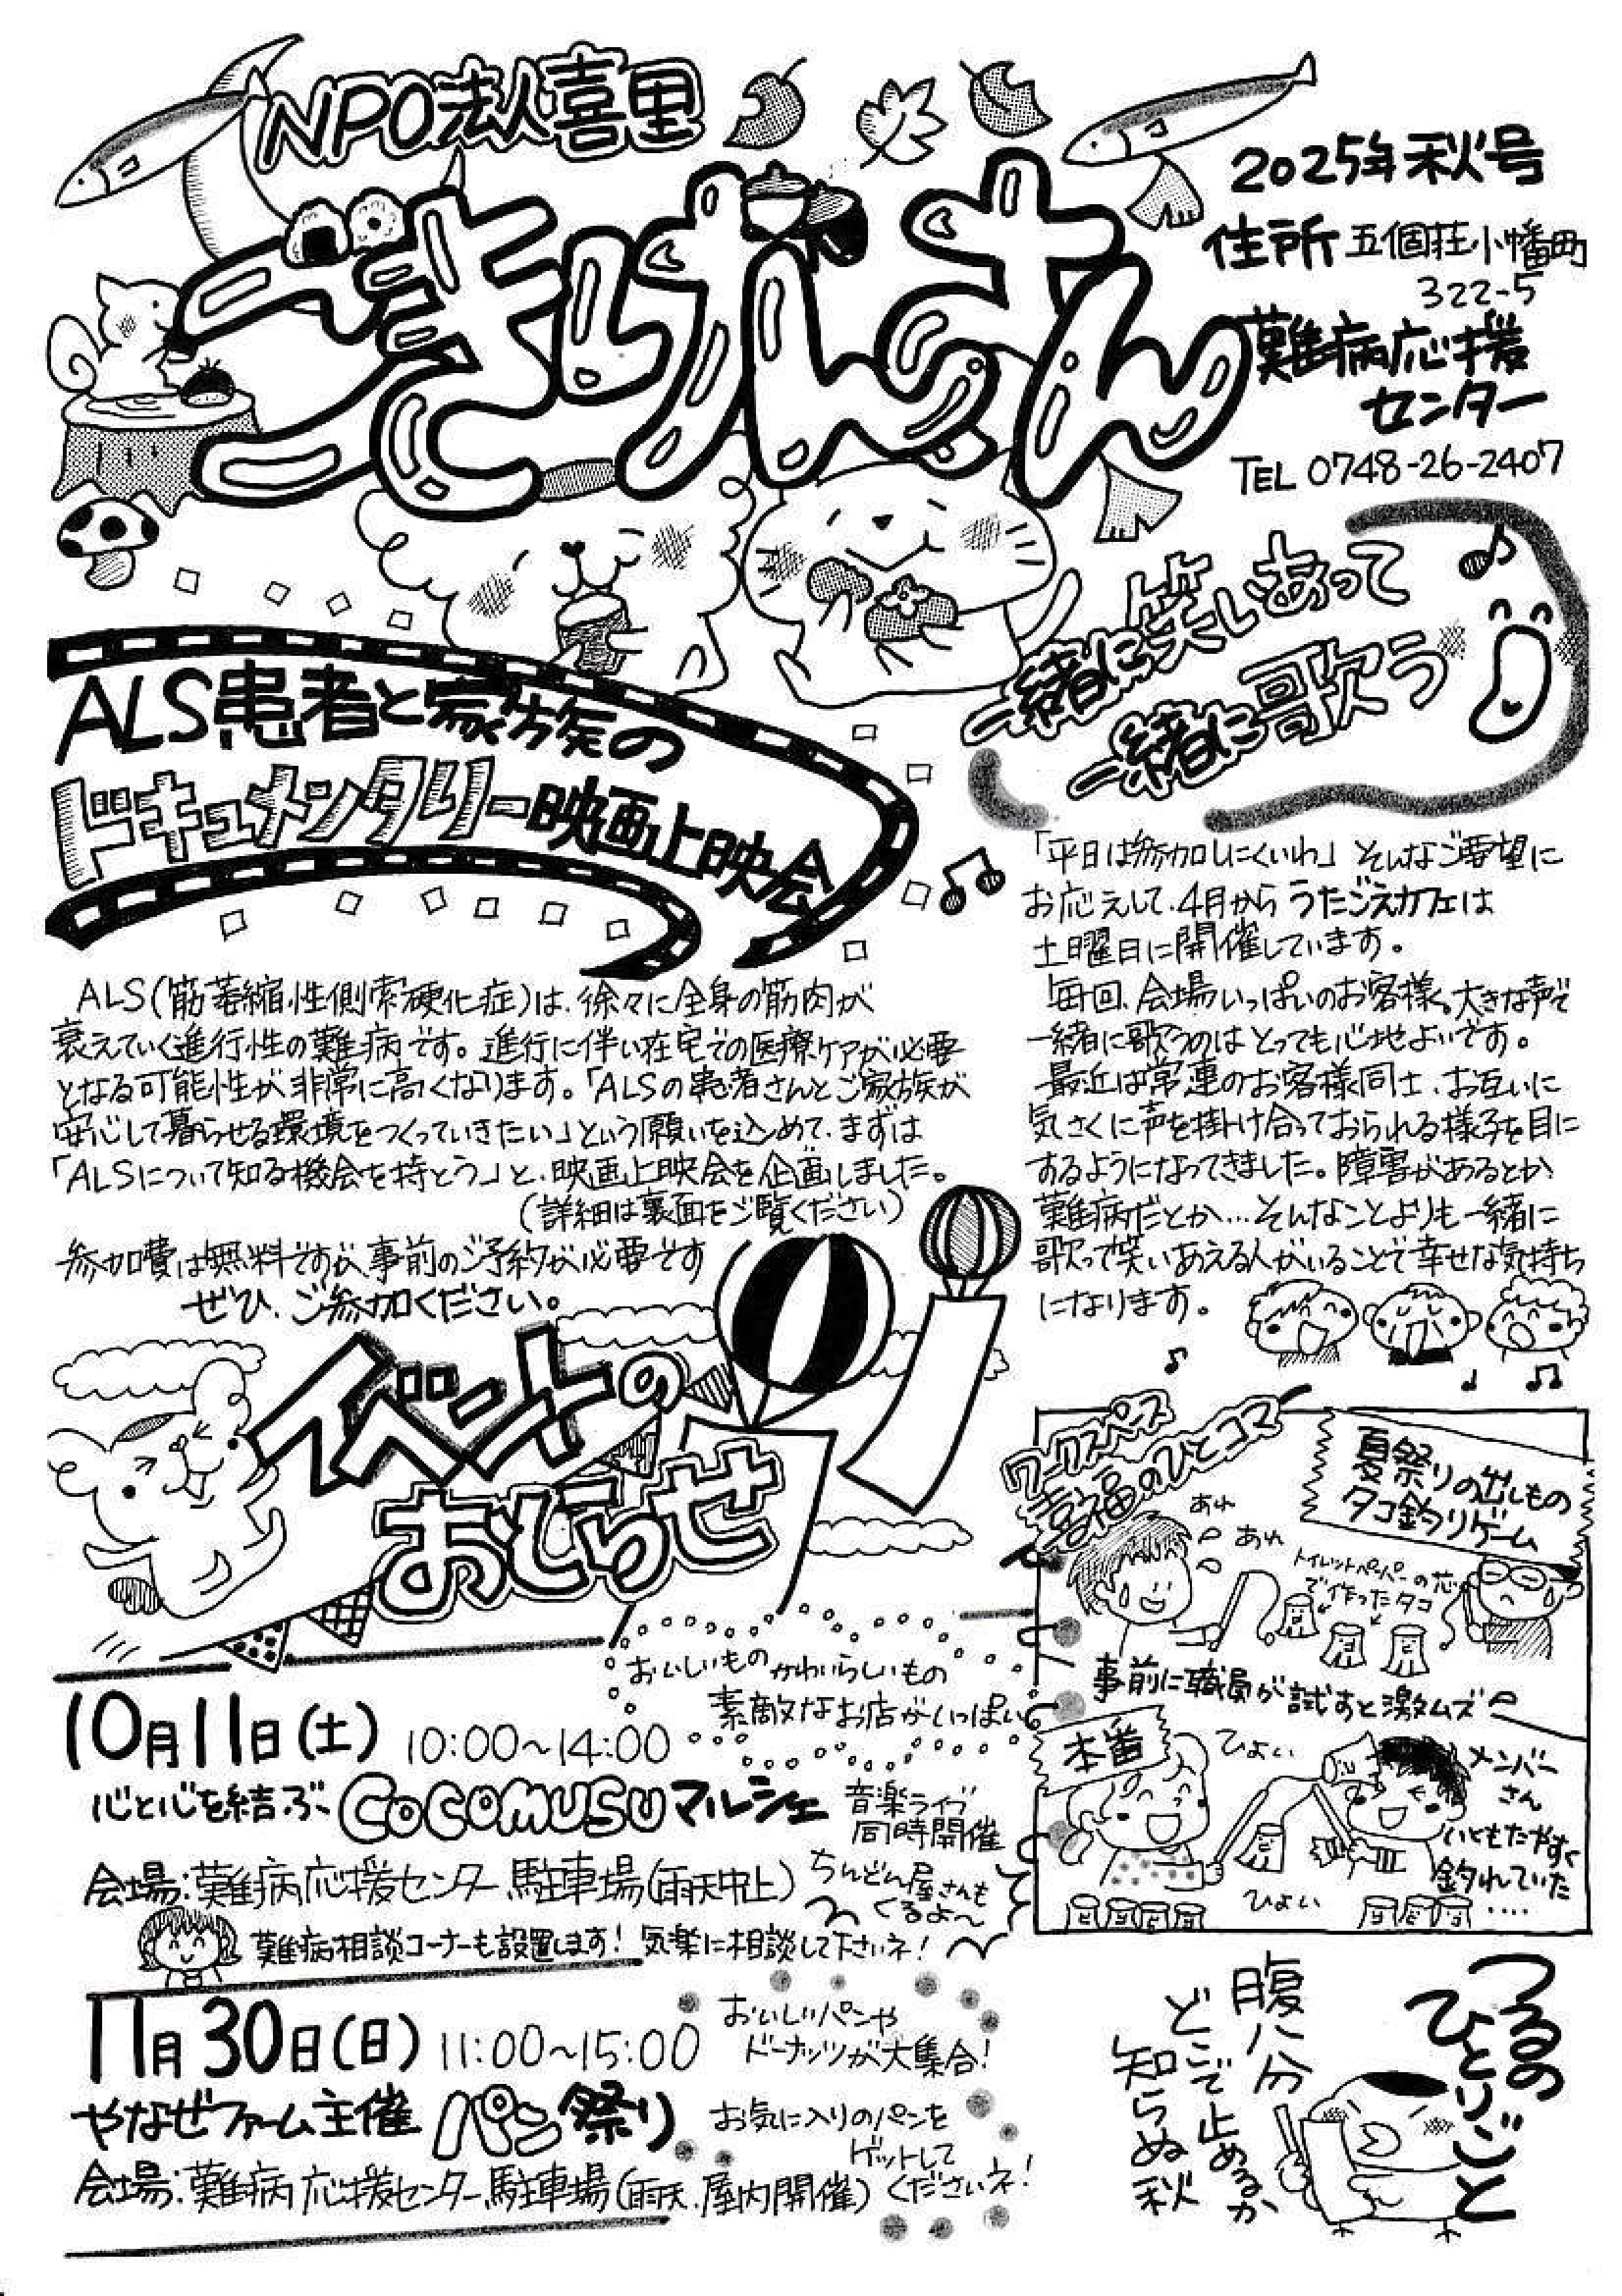 NPO法人喜里
ごきげんさん
2025年 秋号
住所 五個荘小幡町
322-5
難病応援
センター
TEL 0748-26-2407
ALS患者と家族の
ドキュメンタリー映画上映会
ALS(筋萎縮性側索硬化症)は、徐々に全身の筋肉が
衰えていく進行性の難病です。進行に伴い在宅での医療ケアが必要
となる可能性が非常に高くなります。「ALSの患者さんとご家族が
安心して暮らせる環境をつくっていきたい」という願いを込めて、まずは
「ALSについて知る機会を持とう」と、映画上映会を企画しました。
(詳細は裏面をご覧ください)
参加費は無料ですが、事前のご予約が必要です
ぜひ、ご参加ください。
一緒に笑いあって
一緒に歌う
「平日は参加しにくいわ」そんなご要望に
お応えして、4月からうたごえカフェは
土曜日に開催しています。
毎回、会場いっぱいのお客様。大きな声で
一緒に歌うのはとっても心地よいです。
最近は常連のお客様同士、お互いに
気さくに声を掛け合っておられる様子を目に
するようになってきました。障害があるとか
難病だとか…そんなことよりも一緒に
歌って笑いあえる人がいることで幸せな気持ち
になります。
イベントの
おしらせ
おいしいもの かわいらしいもの
素敵なお店がいっぱい
10月11日(土) 10:00~14:00
心と心を結ぶ COCOMUSUマルシェ
音楽ライブ
同時開催
会場:難病応援センター駐車場(雨天中止)
ちんどん屋さんも
くるよ~
難病相談コーナーも設置します! 気楽に相談して下さいネ!
11月30日(日) 11:00~15:00
おいしいパンや
ドーナッツが大集合!
やなぜファーム主催 パン祭り
お気に入りのパンを
ゲットして
くださいネ!
会場:難病応援センター駐車場(雨天、屋内開催)
ワークスペース
幸福のひとコマ
夏祭りの出しもの
タコ釣りゲーム
あれ
あれ
トイレットペーパーの芯
で作ったタコ
事前に職員が試すと激ムズ
本番
ひょい
メンバー
さん
いともたやすく
釣れていた
....
ひょい
つるの
ひとりごと
腹八分
どこで止めるか
知らぬ秋